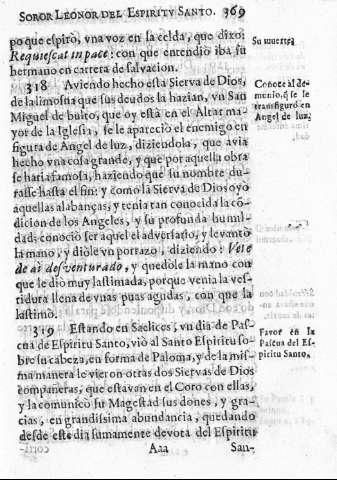 SOROR LEONOR DEL ESPIRITU SANTO. 369
po que espirò, vna voz en la celda, que dixo:
Requiescat in pace: con que entendiò iba su
hermano en carrera de salvacion.
Su muerte.
318 Aviendo hecho esta Sierva de Dios,
de la limosna que sus deudos la hazian, vn San
Miguel de bulto, que oy està en el Altar ma-
yor de la Iglesia, se le apareciò el enemigo en
figura de Angel de luz, diziendola, que avia
hecho vna cosa grande, y que por aquella obra
seria famosa, haziendo que su nombre du-
rasse hasta el fin: y como la Sierva de Dios oyò
aquellas alabanças, y tenia tan conocida la cõ-
dicion de los Angeles, y su profunda humil-
dad: conociò ser aquel el adversario, y levantò
la mano, y diòle vn porrazo, diziendo: Vete
de aì desventurado, y quedòle la mano con
que le diò muy lastimada, porque venia la ves-
tidura llena de vnas puas agudas, con que la
lastimò.
Conoce al de-
monio, q̃ se le
transfigurò en
Angel de luz.
319 Estando en Saelices, vn dia de Pas-
cua de Espiritu Santo, viò al Santo Espiritu so-
bre su cabeza, en forma de Paloma, y de la mis-
ma manera le vieron otras dos Siervas de Dios
compañeras, que estavan en el Coro con ellas,
y la comunicò su Magestad sus dones, y gra-
cias, en grandissima abundancia, quedando
desde este dia sumamente devota del Espiritu
Favor en la
Pascua del Es-
piritu Santo.
Aaa San-